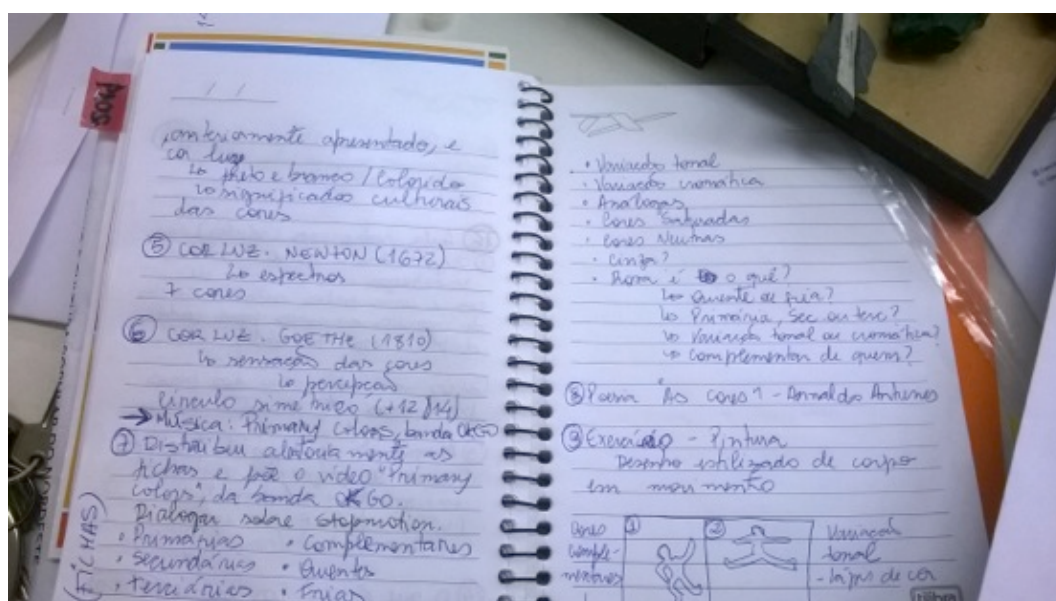 / /
anteriormente apresentado, e
cor luz
↳ preto e branco / Colorido
↳ significados culturais
das cores
⑤ COR LUZ. NEWTON (1672)
↳ espectros
7 cores
⑥ COR LUZ. GOETHE (1810)
↳ sensação das cores
↳ percepção
círculo simétrico (+12 )
→ Música: Primary Colors, banda OKGO
⑦ Distribuu aleatoriamente as
fichas e põe o vídeo "Primary
colors", da banda OKGO.
Dialogar sobre stopmotion.
(FICHAS)
• Primárias • Complementares
• Secundárias • Quentes
• terciárias • Frias
• Variação tonal
• Variação cromática
• Análogas
• Cores Saturadas
• Cores Neutras
• Cinza?
• Rosa é o quê?
↳ Quente ou fria?
↳ Primária, Sec ou terc?
↳ Variação tonal ou cromática?
↳ Complementar de quem?
⑧ Poema "As cores" - Arnaldo Antunes
⑨ Exercício - Pintura
Desenho estilizado de corpo
em movimento
Cores
comple-
mentares
① ②
Variação
tonal
- lápis de cor
tilibra